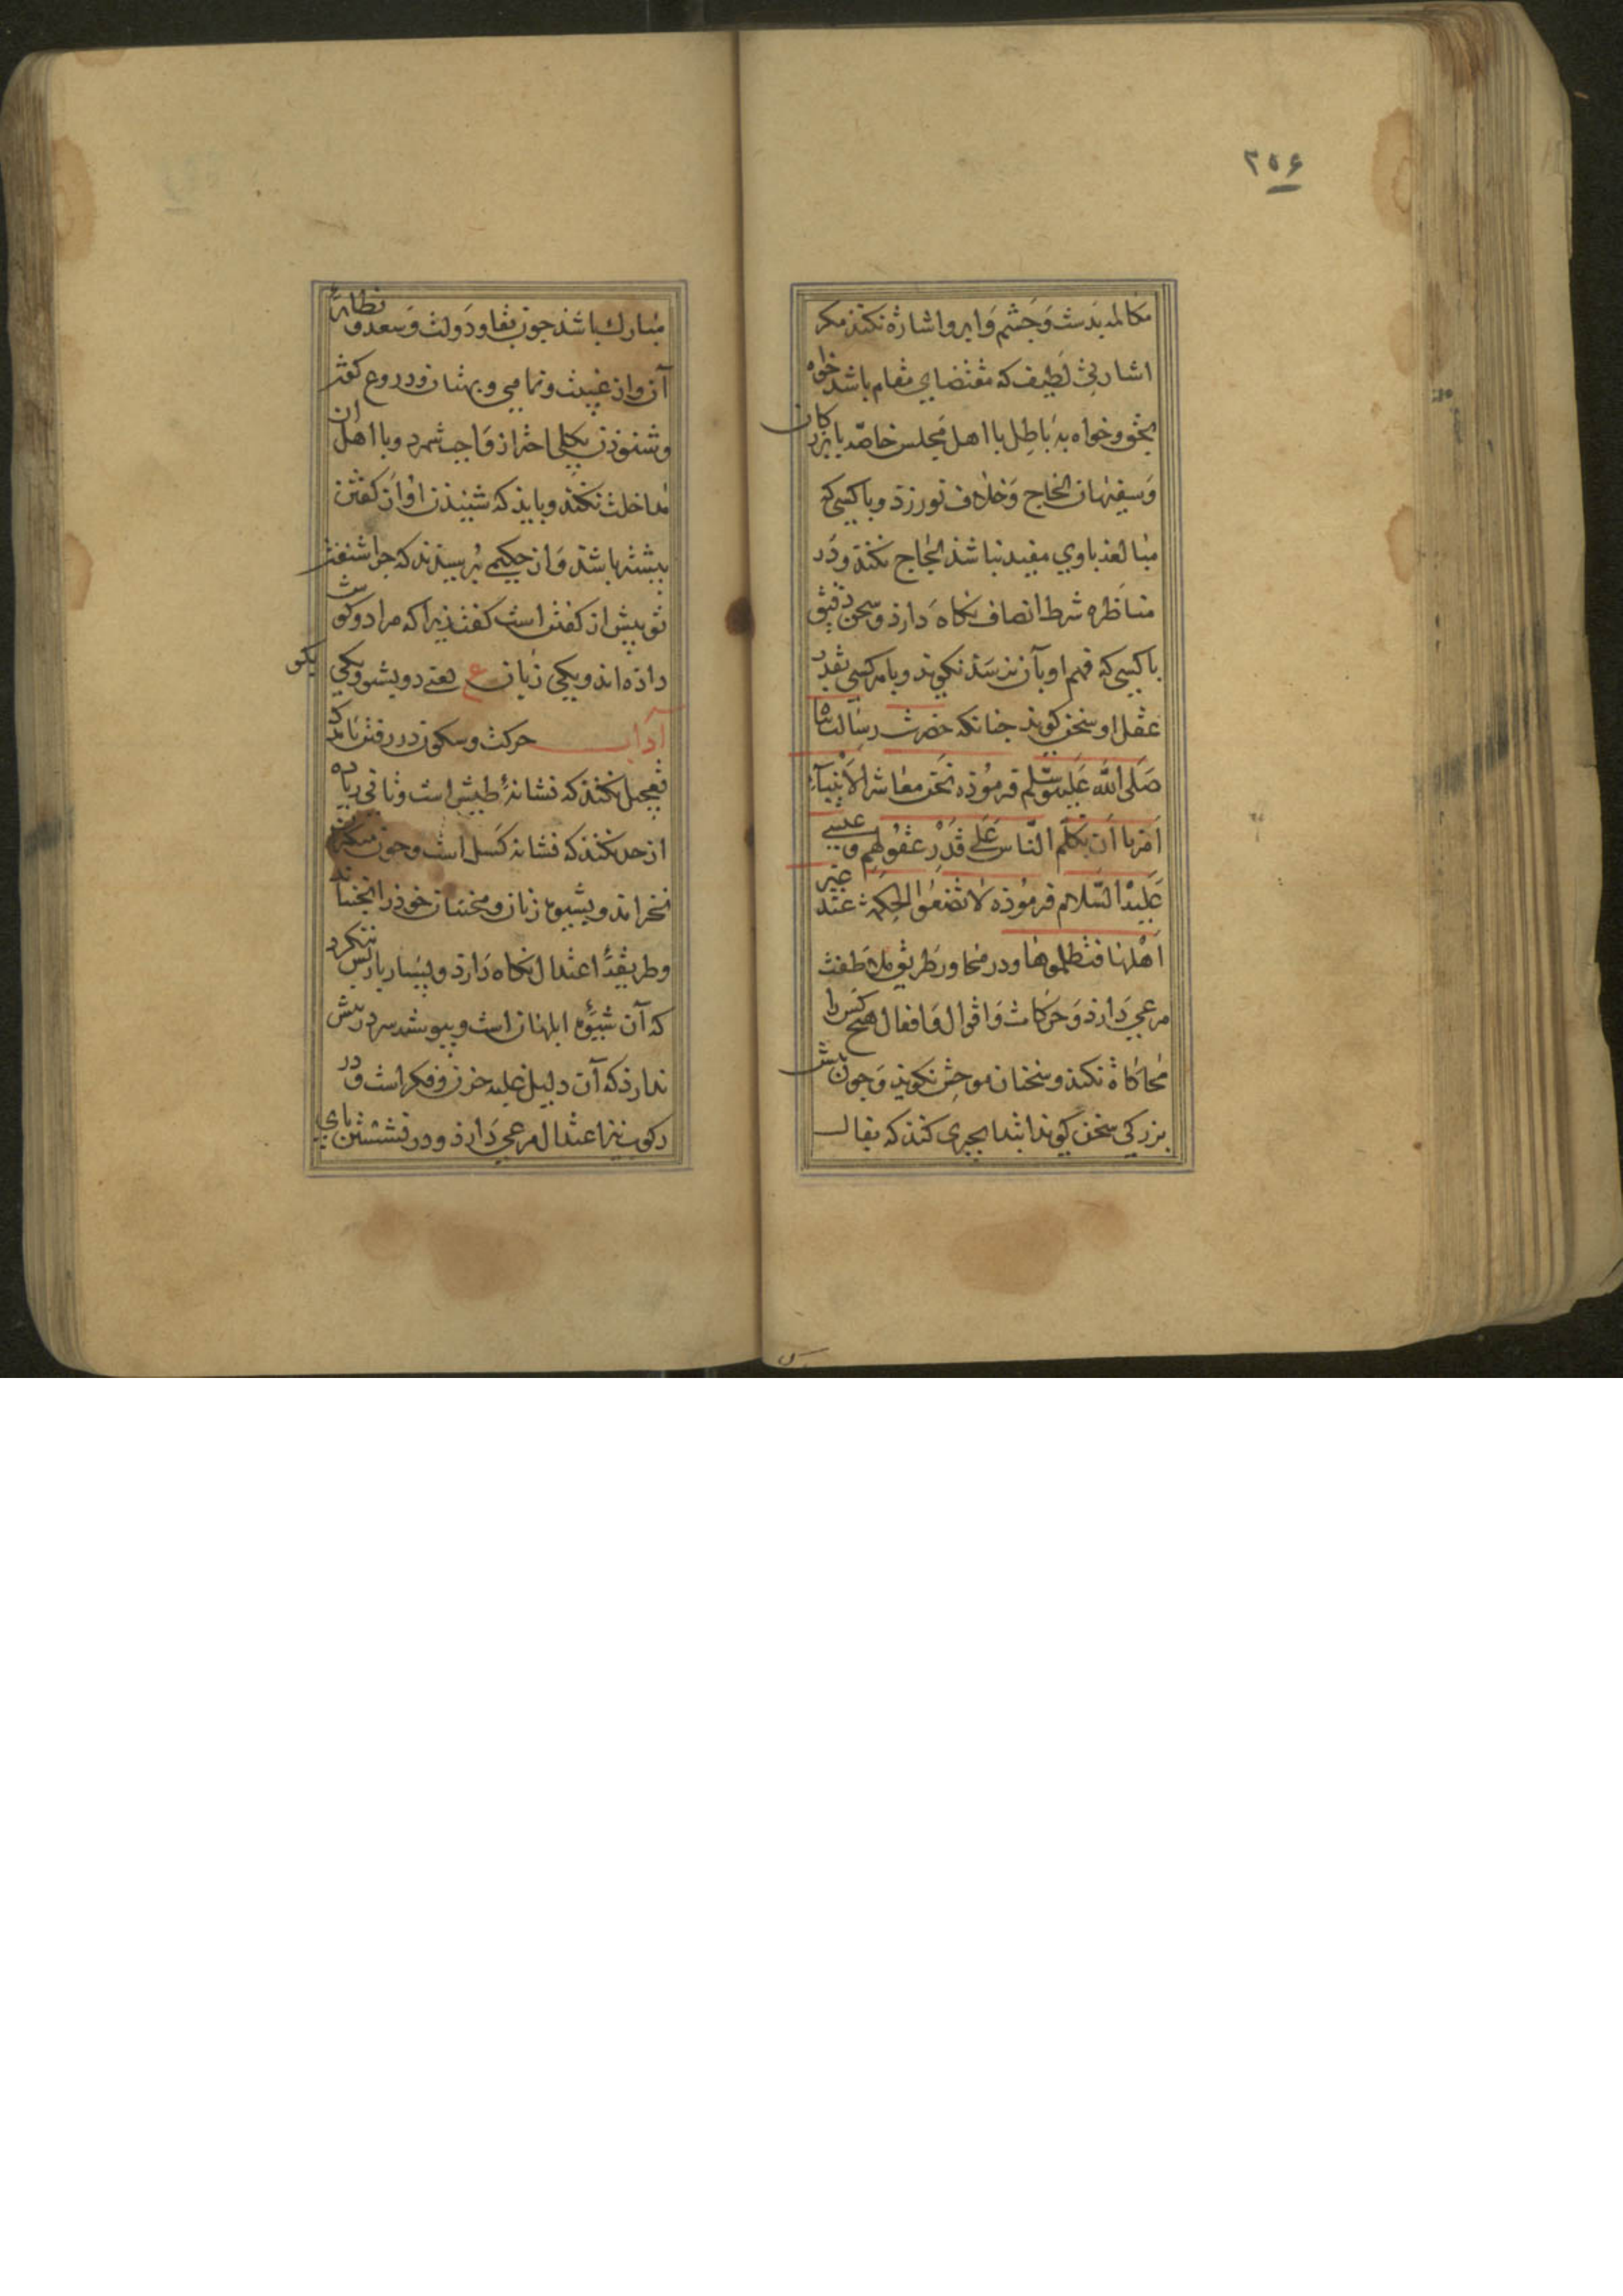 ۲۵۶
مکالمه بدست و چشم و ابرو اشارة نکنذ مکر
اشارتی لطیف که مقتضای مقام باشد خواه
بحق و خواه به باطل با اهل مجلس خاصّه با بزرکان
و سفیهان الحاج و خلاف نورزد و با کسی که
مبالغه باوی مفید نباشذ الحاج نکند و در
مناظره شرط انصاف نکاه دارذ و سخن دقیق
با کسی که فهم او بآن نرسذ نکوید و با هر کسی بقدر
عقل او سخن کوید جنانکه حضرت رسالت پناه
صَلی الله عَلیه وَسَلم فرمُوذه نحن معاشر الأنبیآء
اَمرنا اَن نکلّم النّاس عَلی قَدْرِ عقُولهِم و عیسی
عَلیْه السّلام فرمُوذه لا تضعوا الحکمة عند غیر
اَهْلها فتظلموها و در محاوره طریق ملاطفت
مرعی دارذ و حرکات و اقوال و افعال هیچ کس را
محاکاة نکند و سخنان موحِش نکوید و جون پیش
بزرکی سخن کوید ابتدا بچیزی کند که بفال
مبارك باشذ جون بقا و دولت و سعد و نظایر
آن و از غیبت و نمامی و بهتان و دروغ کفتن
و شنوذن بکلی احتراز واجب شمرد و با اهل آن
مداخلت نکند و بایذ که شنیذن او از کفتن
بیشتر باشذ و از حکیمی پرسیدند که جرا شنفتن
تو بیش از کفتن است کفت زیرا که مرا دو کوش
داذه اند و یکی زبان ع یعنی دو بشنو و یکی بکو
آداب حرکت و سکون در رفتن باید که
تعجیل نکند که نشانهٔ طیش است و تانی زیاده
از حد نکند که نشانه کسل است و جون متکبران
نخرامد و بشیوه زنان و مخنثان خوذ را نجنباند
و طریقهٔ اعتدال نکاه دارذ و بسیار باز پس ننکرد
که آن شیوهٔ ابلهان است و پیوسته سر در پیش
ندارذ که آن دلیل غلبه حزن و فکر است و در
رکوب نیز اعتدال مرعی دارذ و در نشستن پای